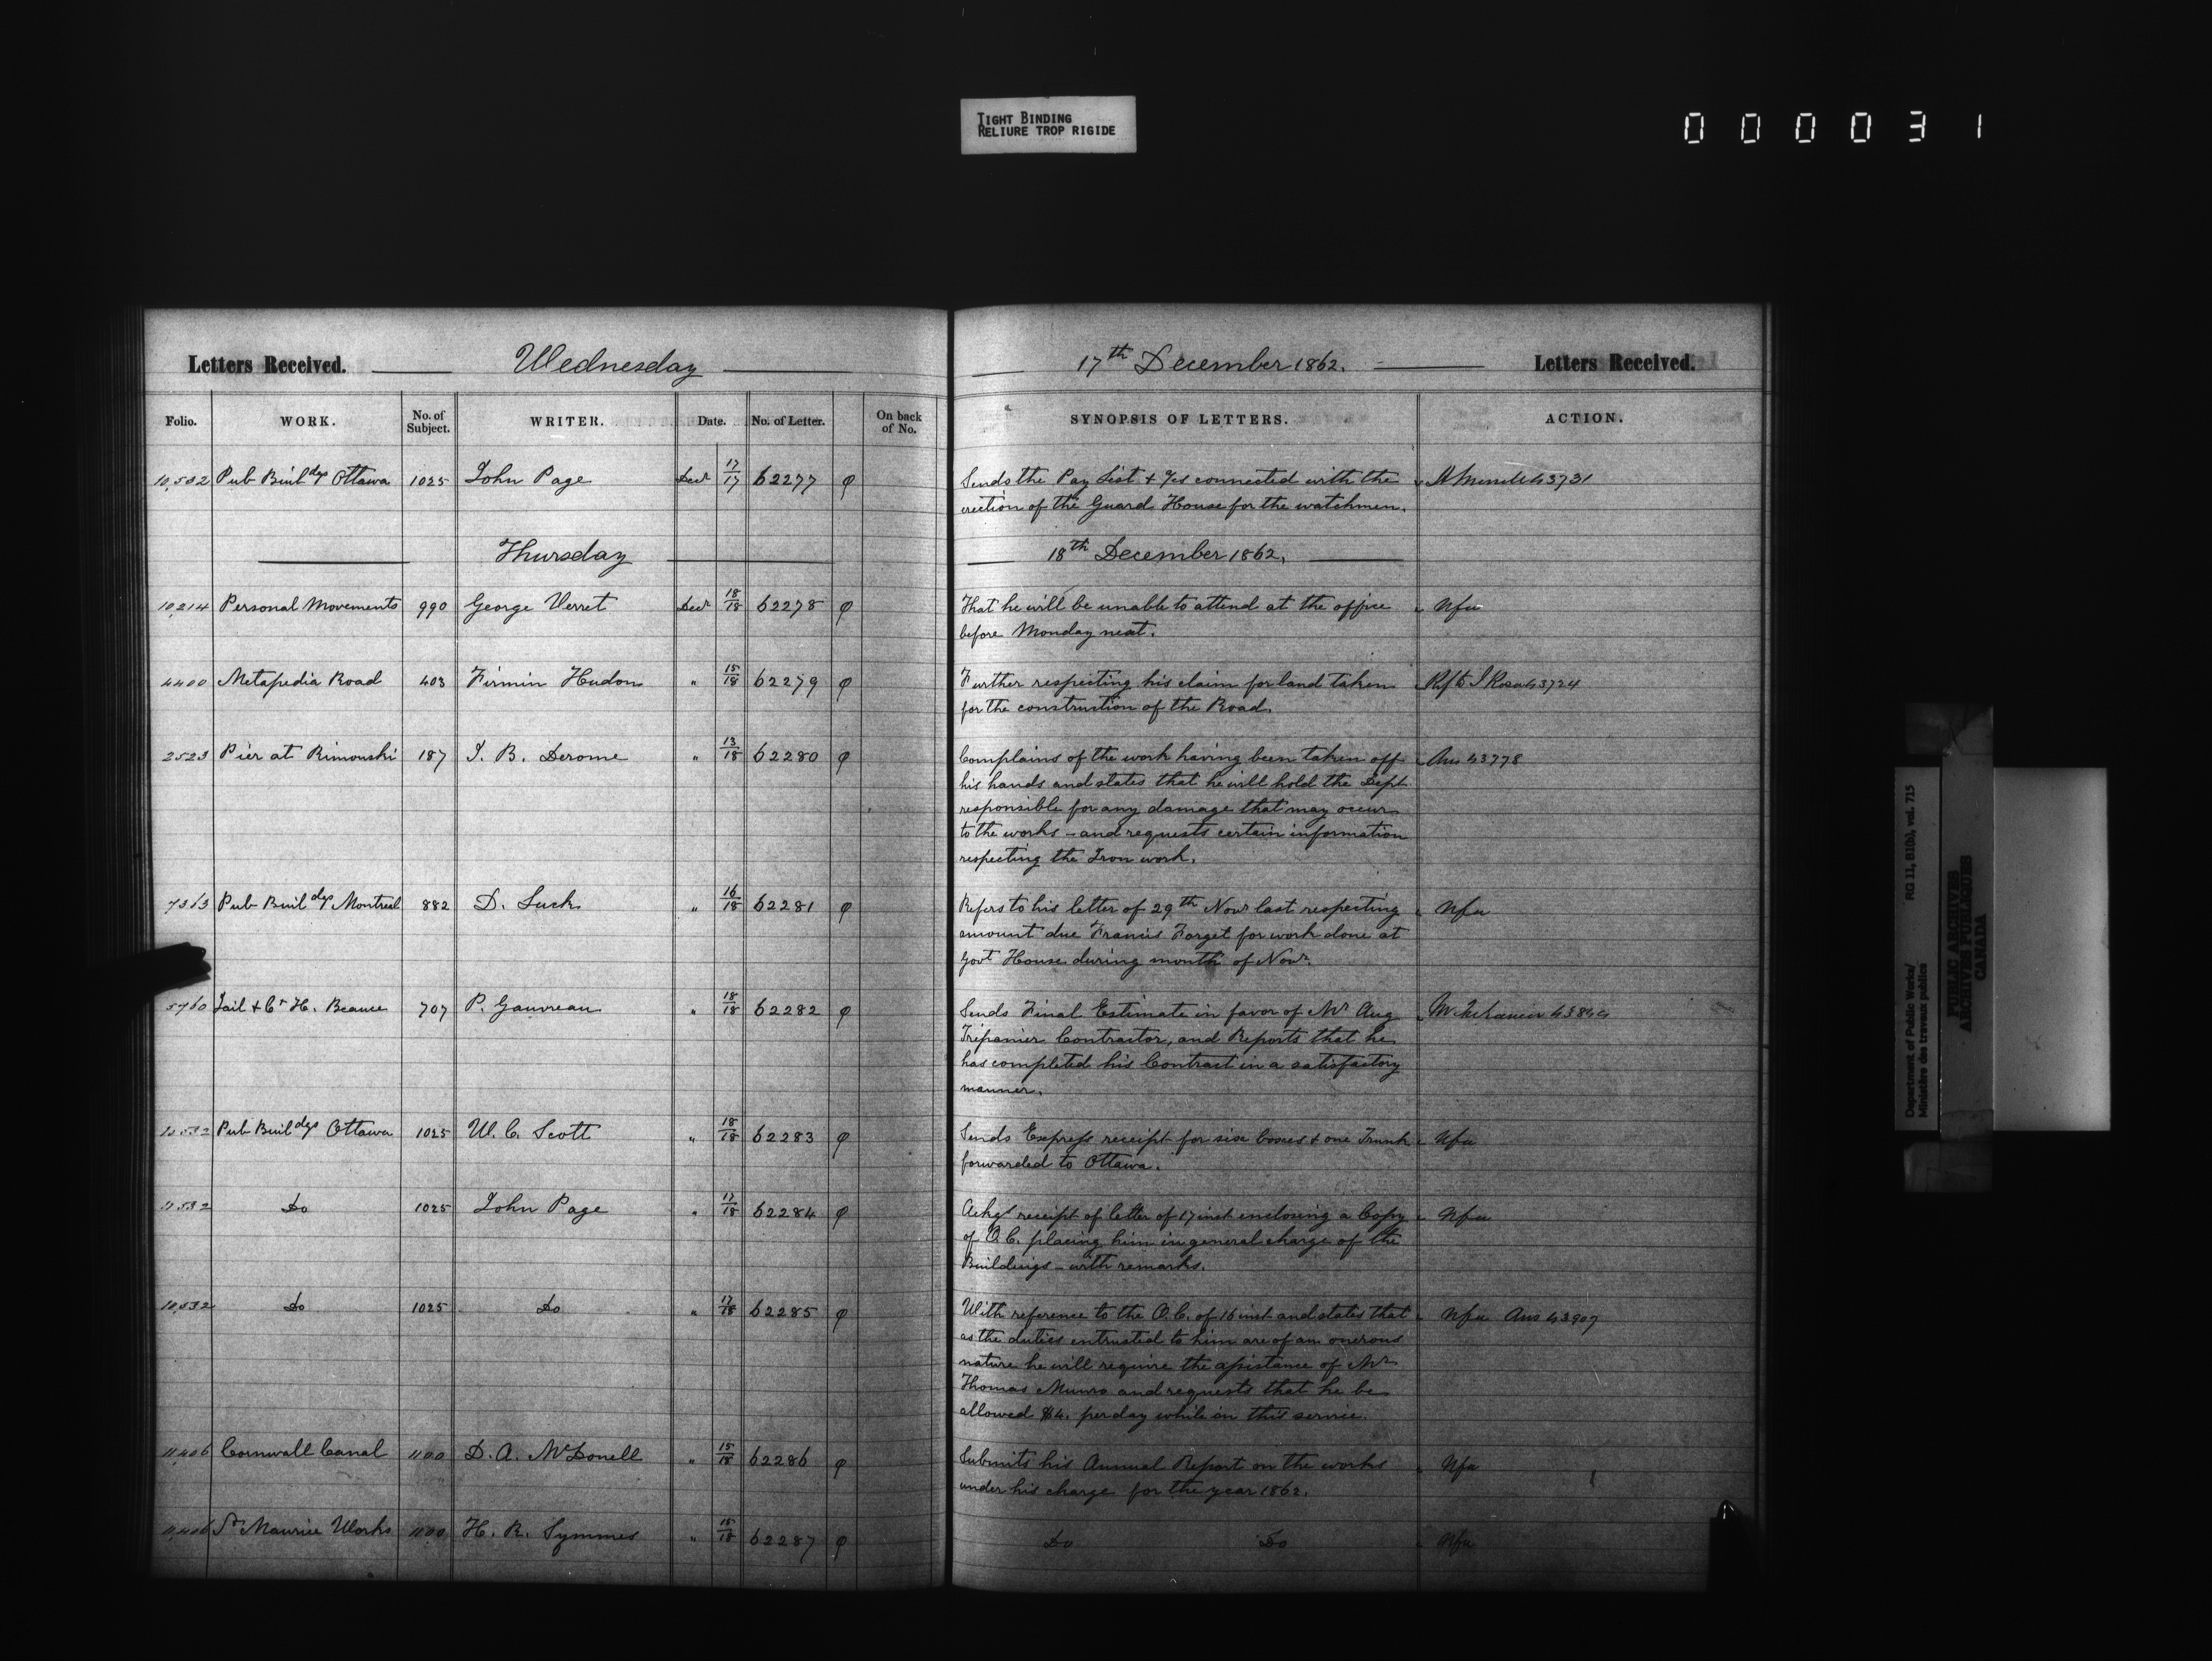 TIGHT BINDING
RELIURE TROP RIGIDE
000031
Letters Received. Wednesday 17th December 1862. Letters Received.
Folio. WORK. No. of Subject. WRITER. Date. No. of Letter. On back of No. SYNOPSIS OF LETTERS. ACTION.
10,532 Pub Buildgs Ottawa 1025 John Page Decr 17/17 62277 φ Sends the Pay List & connected with the 43731
erection of the Guard House for the watchmen.
Thursday 18th December 1862.
10,214 Personal Movements 990 George Verret Decr 18/18 62278 φ That he will be unable to attend at the office Nfa
before Monday next.
4400 Metapedia Road 403 Firmin Hudon " 15/18 62279 φ Further respecting his claim for land taken Rf to J Rose 43724
for the construction of the Road.
2523 Pier at Rimouski 187 J. B. Derome " 13/18 62280 φ Complains of the work having been taken off Ans 43778
his hands and states that he will hold the Dept
responsible for any damage that may occur
to the works - and requests certain information
respecting the Iron work.
7363 Pub Buildgs Montreal 882 D. Luck " 16/18 62281 φ Refers to his letter of 29th Novr last respecting Nfa
amount due Francis Forget for work done at
Govt House during month of Novr.
5760 Jail & Ct H. Beauce 707 P. Gauvreau " 18/18 62282 φ Sends Final Estimate in favor of Mr Aug
Trépanier Contractor, and Reports that he
has completed his Contract in a satisfactory
manner.
10532 Pub Buildgs Ottawa 1025 W. C. Scott " 18/18 62283 φ Sends Express receipt for six boxes & one Trunk Nfa
forwarded to Ottawa.
10532 Do 1025 John Page " 17/18 62284 φ Ackgs receipt of letter of 17 inst enclosing a Copy Nfa
of O.C. placing him in general charge of the
Buildings - with remarks.
10,532 Do 1025 Do " 17/18 62285 φ With reference to the O.C. of 16 inst and states that Nfa Ans 43907
as the duties entrusted to him are of an onerous
nature he will require the assistance of Mr
Thomas Munro and requests that he be
allowed $4. per day while on this service.
11,406 Cornwall Canal 1100 D. A. McDonell " 15/18 62286 φ Submits his Annual Report on the works Nfa
under his charge for the year 1862.
11,406 St Maurice Works 1100 H. R. Symmes " 15/18 62287 φ Do Do Nfa
Department of Public Works/ RG 11, B1(b), vol. 715
Ministère des travaux publics
PUBLIC ARCHIVES
ARCHIVES PUBLIQUES
CANADA